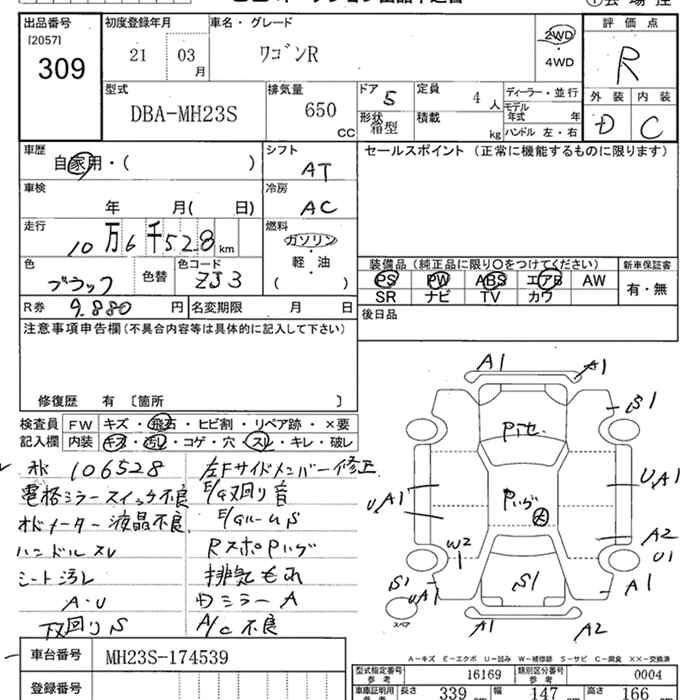 出品番号 初度登録年月 車名・グレード 評価点
[2057]
309
21 03月 ワゴンR 2WD・4WD R
型式 排気量 ドア 5 定員 4人 ディーラー・並行 外装 内装
DBA-MH23S 650 CC 形状 箱型 積載 kg モデル年式 年 D C
ハンドル 左・右
車歴 シフト セールスポイント (正常に機能するものに限ります)
自家用・( ) AT
車検 冷房
年 月( 日) AC
走行 燃料
10万6千528km ガソリン・軽・油 ( )
色 色替 色コード 装備品 (純正品に限り○をつけてください) 新車保証書
ブラック ZJ3 PS PW ABS エアB AW 有・無
SR ナビ TV カワ
R券 9.880円 名変期限 月 日 後日品
注意事項申告欄 (不具合内容等は具体的に記入して下さい)
修復歴 有 〔箇所 〕
検査員 FW キズ・飛石・ヒビ割・リペア跡・×要
記入欄 内装 キズ・汚レ・コゲ・穴・スレ・キレ・破レ
106528 左Fサイドメンバー修正
電格ミラースイッチ不良 E/G又回り音
オドメーター液晶不良 E/GルームS
ハンドルスレ RスポPいグ
シート汚レ 排気もれ
A・U 内ミラーA
下廻りS A/C不良
車台番号 MH23S-174539
登録番号
A1 A1
B1
Pいグ
UA1 UA1
A2
W2 U1
S1 S1 A1
UA1
スペア A1 A2
A-キズ E-エクボ U-凹み W-補修跡 S-サビ C-腐食 ××-交換済
型式指定番号 参考 16169 類別区分番号 参考 0004
車庫証明用 長さ 339 cm 幅 147 cm 高さ 166 cm